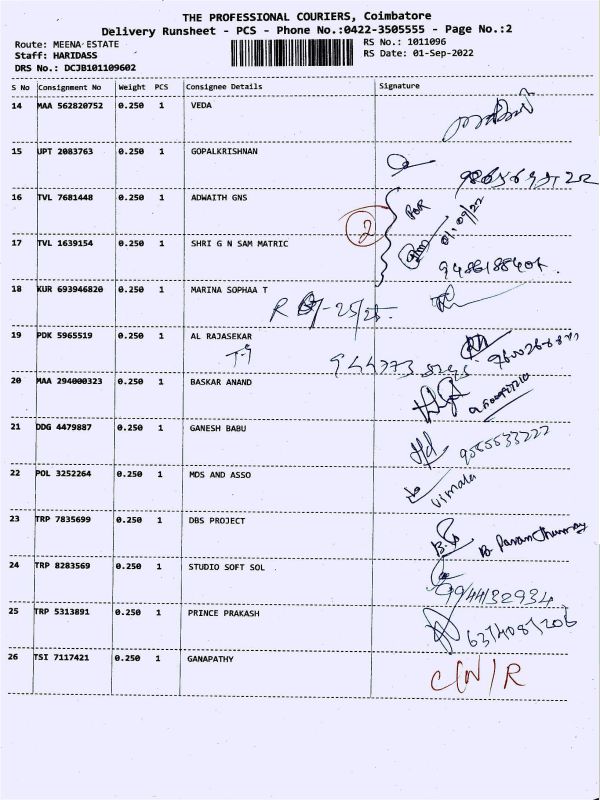 THE PROFESSIONAL COURIERS, Coimbatore
Delivery Runsheet - PCS - Phone No.:0422-3505555 - Page No.:2
Route: MEENA ESTATE
RS No.: 1011096
Staff: HARIDASS
RS Date: 01-Sep-2022
DRS No.: DCJB101109602
S No Consignment No Weight PCS Consignee Details Signature
14 MAA 562820752 0.250 1 VEDA
15 UPT 2083763 0.250 1 GOPALKRISHNAN
16 TVL 7681448 0.250 1 ADWAITH GNS
2
01/09/22
17 TVL 1639154 0.250 1 SHRI G N SAM MATRIC
18 KUR 693946820 0.250 1 MARINA SOPHAA T
19 PDK 5965519 0.250 1 AL RAJASEKAR
20 MAA 294000323 0.250 1 BASKAR ANAND
21 DDG 4479887 0.250 1 GANESH BABU
22 POL 3252264 0.250 1 MDS AND ASSO
vimala
23 TRP 7835699 0.250 1 DBS PROJECT
24 TRP 8283569 0.250 1 STUDIO SOFT SOL
9944132934
25 TRP 5313891 0.250 1 PRINCE PRAKASH
26 TSI 7117421 0.250 1 GANAPATHY
C/N/R